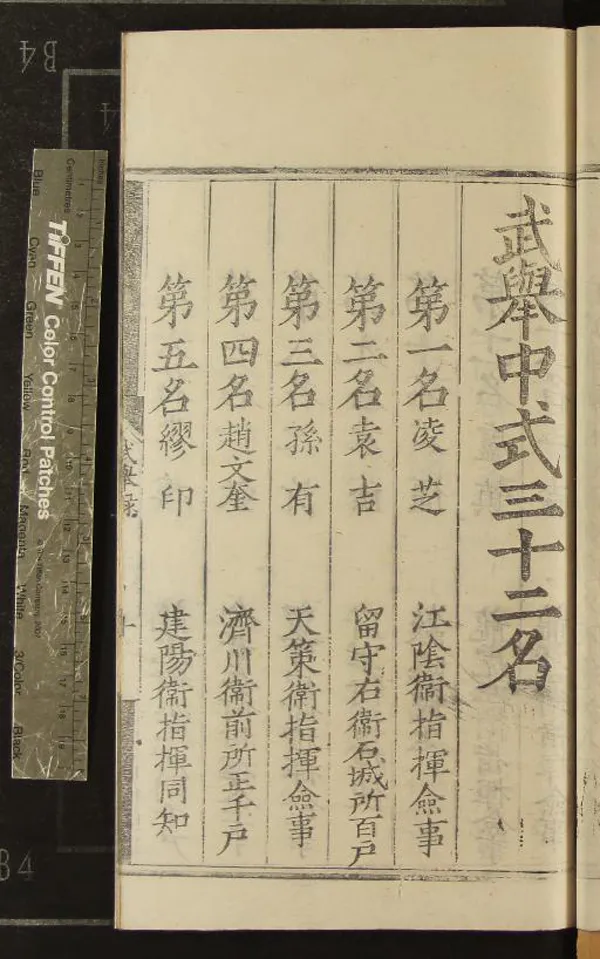 武舉中式三十二名
第一名凌芝 江陰衞指揮僉事
第二名袁吉 留守右衞石城所百戶
第三名孫有 天策衞指揮僉事
第四名趙文奎 濟川衞前所正千戶
第五名繆印 建陽衞指揮同知
武舉録
TIFFEN Color Control Patches
Centimetres
Inches
Blue
Cyan
Green
Yellow
Red
Magenta
White
3/Color
Black
B4
B4